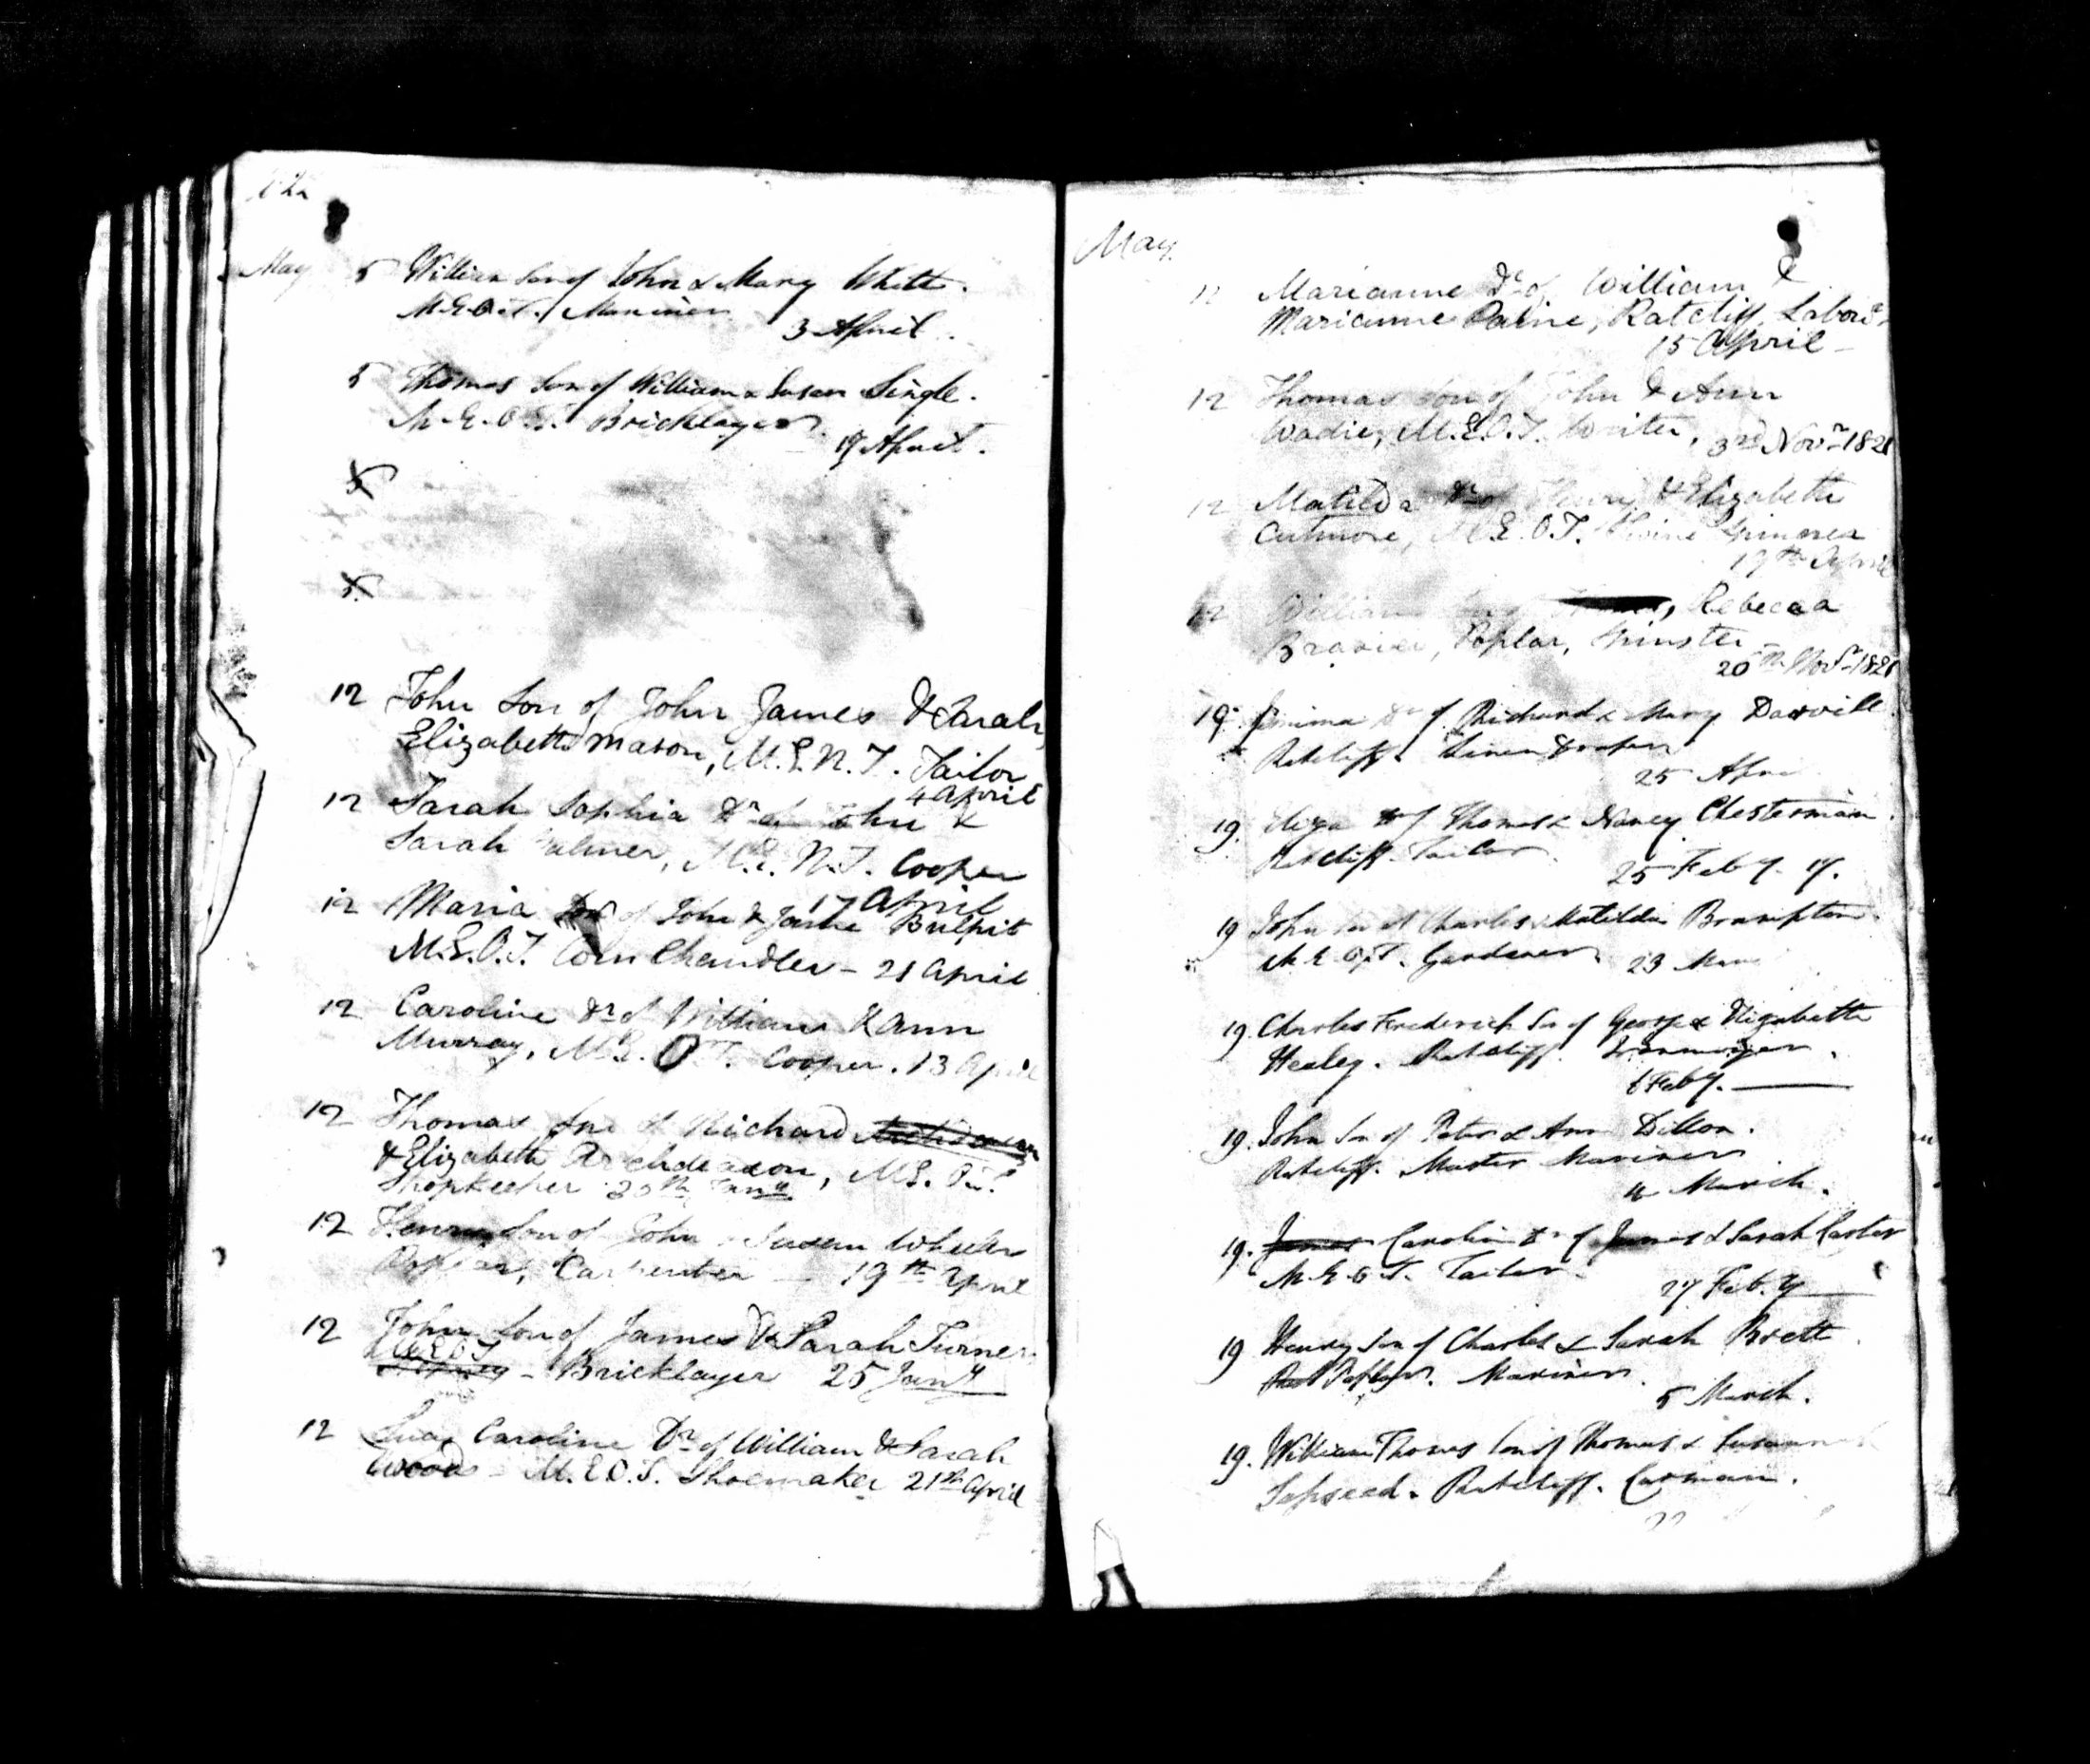 May 5 William Son of John & Mary White.
M.E.O.T. Mariner
3 April.
5 Thomas Son of William & Susan Single.
M.E.O.T. Bricklayer.
19 April.
5
5.
12 John Son of John James & Sarah
Elizabeth Mason, M.E.N.T. Tailor
4 April
12 Sarah Sophia Dr of John &
Sarah Palmer, M.E.N.T. Cooper
17 April
12 Maria of John & Jane Bulpit
M.E.O.T. Corn Chandler - 21 April
12 Caroline Dr of William & Ann
Murray, M.E.O.T. Cooper. 13 April
12 Thomas Son of Richard
& Elizabeth Archdeacon, M.E.O.T.
Shopkeeper 20th Jany
12 Henry Son of John & Susan Wheeler
Poplar, Carpenter - 19th April
12 John Son of James & Sarah Turner
M.E.O.T
- Bricklayer 25 Jany
12 Caroline Dr of William & Sarah
Woods - M.E.O.T. Shoemaker 21st April
May.
12 Marianne Dr of William &
Marianne Paine, Ratcliff, Labour
15 April -
12 Thomas Son of John & Ann
Wadie, M.E.O.T. Writer, 3rd Novr 1821
12 Matilda Dr of Henry & Elizabeth
Cutmore, M.E.O.T. Spinner
19th April
12 William Son of Rebecca
Brazier, Poplar, Spinster -
20th Novr 1821
19. Jemima Dr of Richard & Mary Darvill.
Ratcliff. Linen Draper
25 Apri
19. Eliza Dr of Thomas & Nancy Chesterman.
Ratcliff. Tailor.
25 Feby.
19 John Son of Charles & Matilda Brampton.
M.E.O.T. Gardener. 23 Mar
19. Charles Frederick Son of George & Elizabeth
Healey. Ratcliff. Ironmonger.
6 Feby.
19. John Son of Peter & Ann Dillon.
Ratcliff. Master Mariner
4 March.
19. James Caroline Dr of James & Sarah Carter
M.E.O.T. Tailor.
27 Feby
19 Henry Son of Charles & Sarah Brett.
Poplar. Mariner.
5 March.
19. William Thomas Son of Thomas & Susannah
Ratcliff. Carman.
22